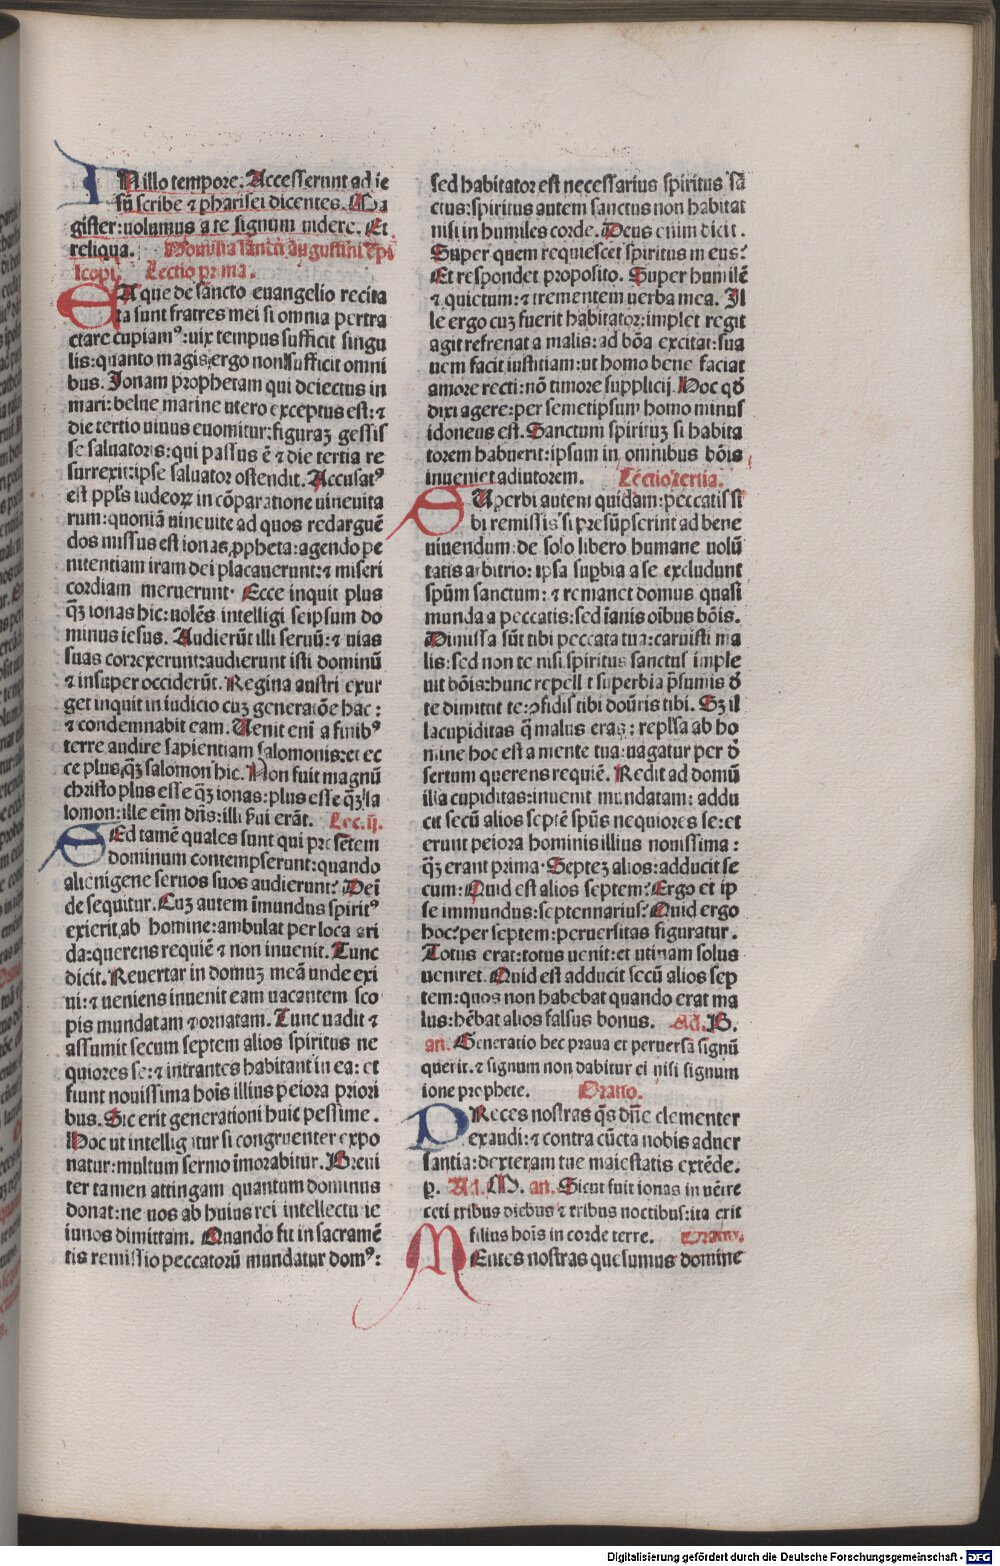 IN illo tempore: Accesserunt ad ie
sū scribe ⁊ pharisei dicentes. Ma
gister: volumus a te signum videre. Et
reliqua. Homilia sancti augustini epi
scopi. Lectio prima.
EA que de sancto euangelio recita
ta sunt fratres mei si omnia pertra
ctare cupiamꝰ: vix tempus sufficit singu
lis: quanto magis ergo non sufficit omni
bus. Jonam prophetam qui deiectus in
mari: belue marine vtero exceptus est: ⁊
die tertio viuus euomitur: figuraꝫ gessis
se saluatoris: qui passus ē ⁊ die tertia re
surrexit: ipse saluator ostendit. Accusatꝰ
est ppl̄s iudeoꝝ in cōparatione nineuita
rum: quoniā niniuite ad quos redarguē
dos missus est ionas ꝓpheta: agendo pe
nitentiam iram dei placauerunt: ⁊ miseri
cordiam meruerunt. Ecce inquit plus
qꝫ ionas hic: volēs intelligi seipsum do
minus iesus. Audierūt illi seruū: ⁊ vias
suas correxerunt: audierunt isti dominū
⁊ insuper occiderūt. Regina austri exur
get inquit in iudicio cuꝫ generatōe hac:
⁊ condemnabit eam. Uenit eni a finibꝰ
terre audire sapientiam salomonis: et ec
ce plus qꝫ salomon hic. Non fuit magnū
christo plus esse qꝫ ionas: plus esse qꝫ sa
lomon: ille eīm dn̄s: illi serui erāt. Lec. ij.
SEd tamē quales sunt qui presētem
dominum contempserunt: quando
alienigene seruos suos audierunt? Dei
de sequitur. Cuꝫ autem īmundus spiritꝰ
exierit ab homine: ambulat per loca ari
da: querens requiē ⁊ non inuenit. Tunc
dicit. Reuertar in domuꝫ meā vnde exi
ui: ⁊ veniens inuenit eam vacantem sco
pis mundatam ⁊ ornatam. Tunc vadit ⁊
assumit secum septem alios spiritus ne
quiores se: ⁊ intrantes habitant in ea: et
fiunt nouissima hoīs illius peiora priori
bus. Sic erit generationi huic pessime.
Hoc vt intelligatur si congruenter expo
natur: multum sermo īmorabitur. Breui
ter tamen attingam quantum dominus
donat: ne vos ab huius rei intellectu ie
iunos dimittam. Quando fit in sacramē
tis remissio peccatorū mundatur domꝰ:
sed habitator est necessarius spiritus sā
ctus: spiritus autem sanctus non habitat
nisi in humiles corde. Deus enim dicit.
Super quem requiescet spiritus meus?
Et respondet proposito. Super humilē
⁊ quietum: ⁊ trementem verba mea. Il
le ergo cuꝫ fuerit habitator: implet regit
agit refrenat a malis: ad bōa excitat: sua
uem facit iustitiam: vt homo bene faciat
amore recti: nō timore supplicij. Hoc qd̄
dixi agere: per semetipsum homo minus
idoneus est. Sanctum spirituꝫ si habita
torem habuerit: ipsum in omnibus bōis
inueniet adiutorem. Lectio tertia.
SUperbi autem quidam: peccatis si
bi remissis si presūpserint ad bene
viuendum de solo libero humane volū
tatis arbitrio: ipsa supbia a se excludunt
spūm sanctum: ⁊ remanet domus quasi
munda a peccatis: sed īanis oībus bōis.
Dimissa sūt tibi peccata tua: caruisti ma
lis: sed non te nisi spiritus sanctus imple
uit bōis: hunc repellit superbia p̄sumis d̄
te dimittit te: ꝯfidis tibi donaris tibi. Sꝫ il
la cupiditas q̄ malus eras: repl̄sa ab ho
mine hoc est a mente tua: vagatur per d̄
sertum querens requiē. Redit ad domū
illa cupiditas: inuenit mundatam: addu
cit secū alios septē spūs nequiores se: et
erunt peiora hominis illius nouissima:
qꝫ erant prima. Septeꝫ alios: adducit se
cum: Quid est alios septem? Ergo et ip
se immundus: septennarius? Quid ergo
hoc? per septem: peruersitas figuratur.
Totus erat: totus venit: et vtinam solus
veniret. Quid est adducit secū alios sep
tem: quos non habebat quando erat ma
lus: hēbat alios falsus bonus. Ad. B.
an. Generatio hec praua et peruersa signū
querit. ⁊ signum non dabitur ei nisi signum
ione prophete. Oratio.
PReces nostras q̄s dn̄e clementer
exaudi: ⁊ contra cūcta nobis aduer
santia: dexteram tue maiestatis extēde.
p. Ad. M. an. Sicut fuit ionas in vētre
ceti tribus diebus ⁊ tribus noctibus: ita erit
filius hoīs in corde terre. Oratio.
MEntes nostras quesumus domine
Digitalisierung gefördert durch die Deutsche Forschungsgemeinschaft - DFG